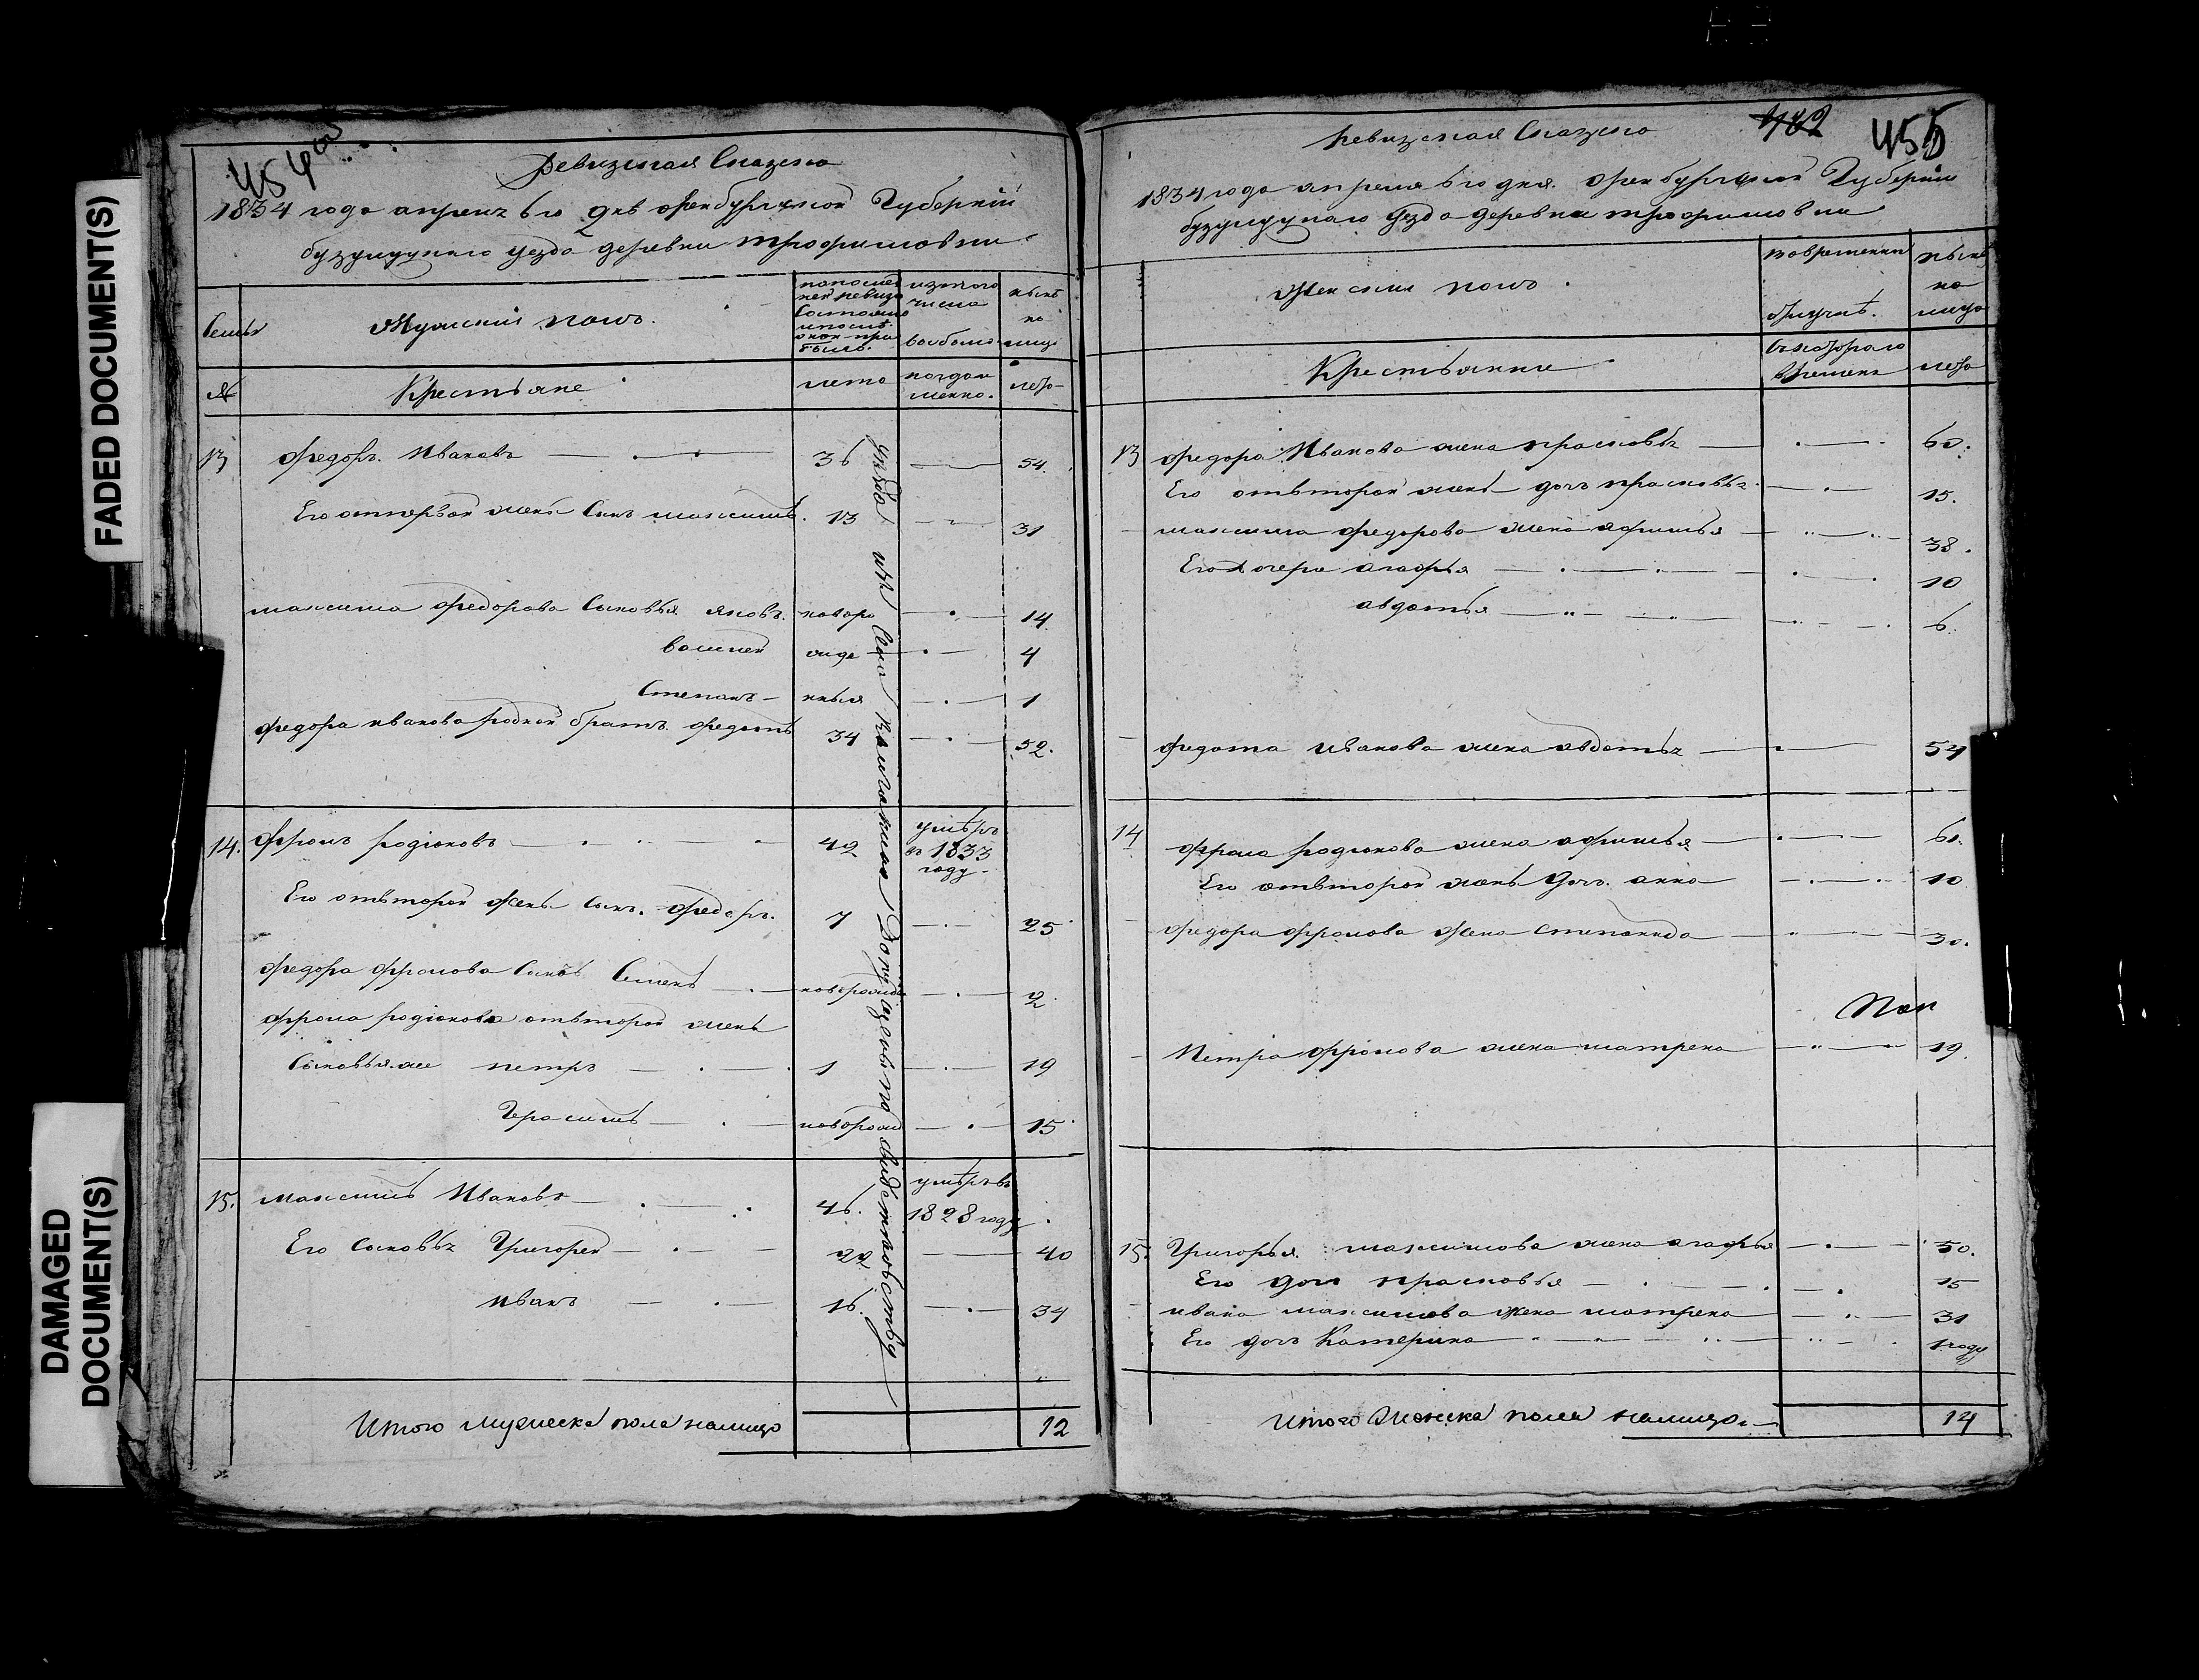 FADED DOCUMENT(S)
DAMAGED
DOCUMENT(S)
454 об
Ревизская Сказка
1834 года апреля 6го дня оренбургской Губернiи
бузулуцкаго уезда деревни трофимовки
Семьи
Мужский полъ.
попослед
ней ревизи
состояло
ипосле
оной при
было.
изтого
числа
выбыло
ныне
на
лицо
№
Крестьяне
лета
когда
имянно.
лета
13 федоръ Ивановъ 36 54.
Его отпервой жены Сынъ максимъ. 13 31
максима федорова Сыновья яковъ. новоро 14
василей жде 4
Степанъ нныя 1
федора иванова родной братъ федотъ 34 52.
14. фролъ родiоновъ 42 умѣръ
въ 1833
году
Его отвторой жены Сынъ. федоръ. 7 25
федора фролова Сынъ Семенъ новорожде 2
фрола родiонова отвторой жены
Сыновья же петръ 1 19
Герасимъ новорожд 15
15. максимъ Ивановъ 46. умѣръ въ
1828 году
Его сыновья Григорей 22 40
иванъ 16. 34
Итого мужеска пола налицо 12
482 455
Ревизская Сказка
1834 года апреля 6го дня. оренбургской Губернiи
бузулуцкаго уезда деревни трофимовки
Женский полъ.
вовременной
отлучкѣ.
ныне
на
лицо
Крестьянки
Скотораго
времени
лета
13 федора Иванова жена прасковья 60.
Его отвторой жены дочь прасковья 15.
максима федорова жена афимья 38.
Его дочери агафья 10
авдотья 6.
федота иванова жена авдотья 54
14 фрола родионова жена афимья 60.
Его отвторой жены дочь. анна 10
федора фролова жена степанида 30.
Петра фролова жена матрена 19.
15. Григорья максимова жена агафья 50.
Его дочь прасковья 15
ивана максимова жена матрена 31
Его дочь Катерина 1 году
итого Женска пола налицо 14